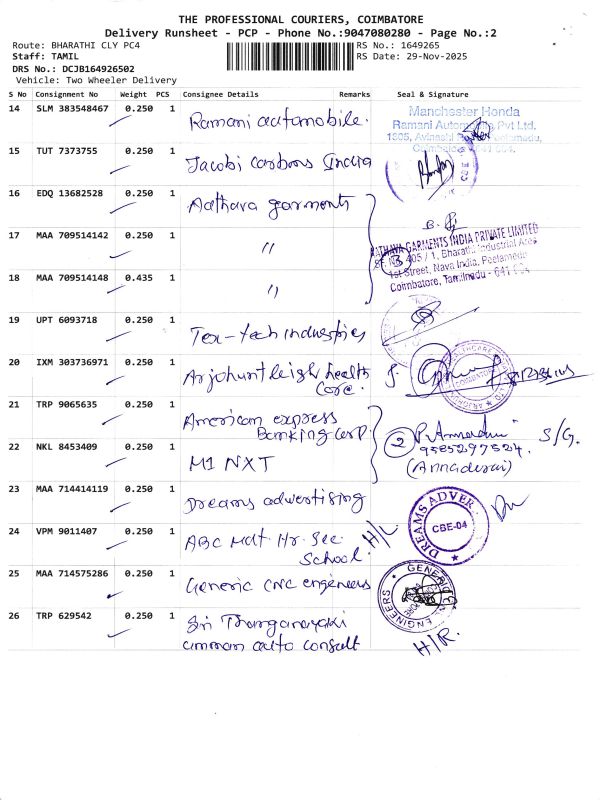 THE PROFESSIONAL COURIERS, COIMBATORE
Delivery Runsheet - PCP - Phone No.:9047080280 - Page No.:2
Route: BHARATHI CLY PC4 RS No.: 1649265
Staff: TAMIL RS Date: 29-Nov-2025
DRS No.: DCJB164926502
Vehicle: Two Wheeler Delivery
S No Consignment No Weight PCS Consignee Details Remarks Seal & Signature
14 SLM 383548467 0.250 1 Ramani automobile.
Manchester Honda
Ramani Pvt Ltd.
1805, Avinashi
15 TUT 7373755 0.250 1 Jacobi carbons India
16 EDQ 13682528 0.250 1 Aathava garments
17 MAA 709514142 0.250 1 "
AATHAVA GARMENTS INDIA PRIVATE LIMITED
405 / 1, Bharathi Industrial Area
1st Street, Nava India, Peelamedu
Coimbatore, Tamilnadu - 641 004
3
18 MAA 709514148 0.435 1 "
19 UPT 6093718 0.250 1 Tex-tech industries
20 IXM 303736971 0.250 1 Arjohuntleigh health
Care.
21 TRP 9065635 0.250 1 American express
Banking Corp.
2 S/G.
9585297524
(Annadurai)
22 NKL 8453409 0.250 1 M1 NXT
23 MAA 714414119 0.250 1 Dreams advertising
DREAMS ADVER
CBE-04
24 VPM 9011407 0.250 1 ABC Mat. Hr. Sec
School. H/L
25 MAA 714575286 0.250 1 Generic cnc engineers
GENERIC ENGINEERS
26 TRP 629542 0.250 1 Sri Thanganayaki
amman auto consult H/R.